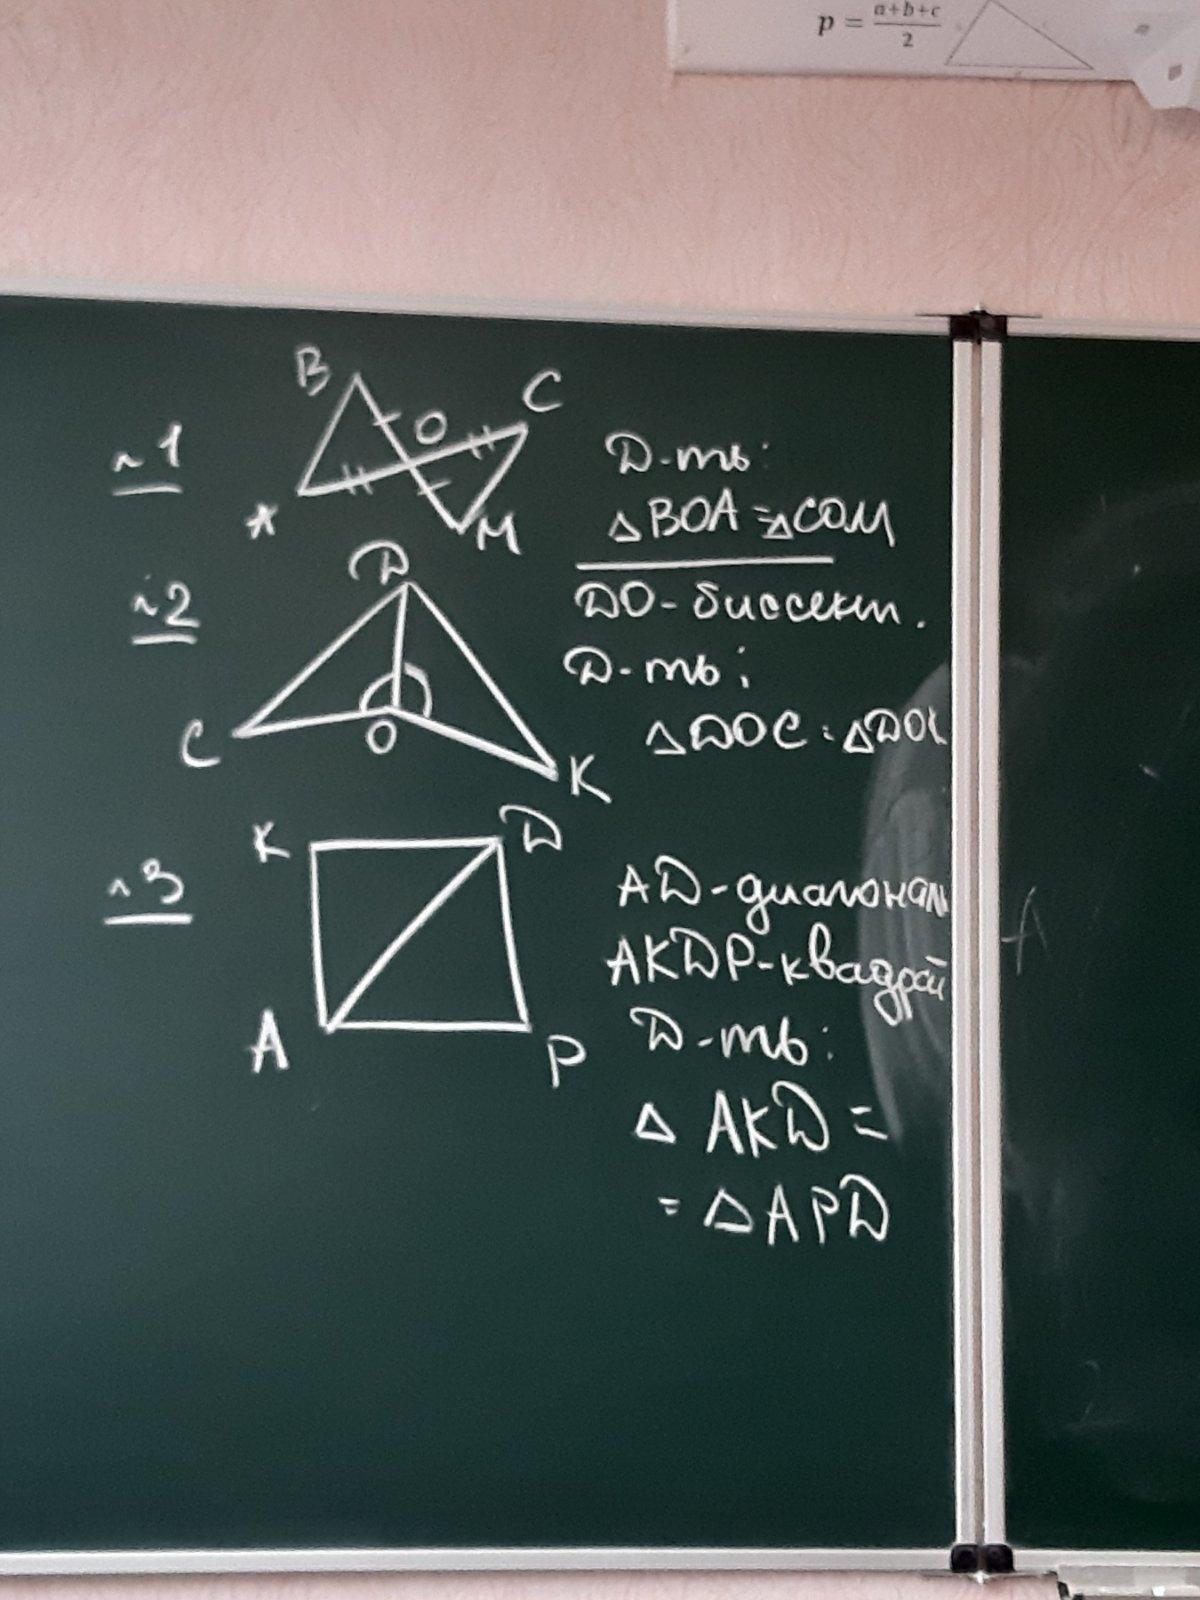 p = a+b+c / 2
№1
B
O
C
A
M
D-ть:
△BOA = △COM
№2
D
C
O
K
DO - биссект.
D-ть:
△DOC = △DOK
№3
K
D
A
P
AD - диагональ
AKDP - квадрат
D-ть:
△ AKD =
= △APD
A